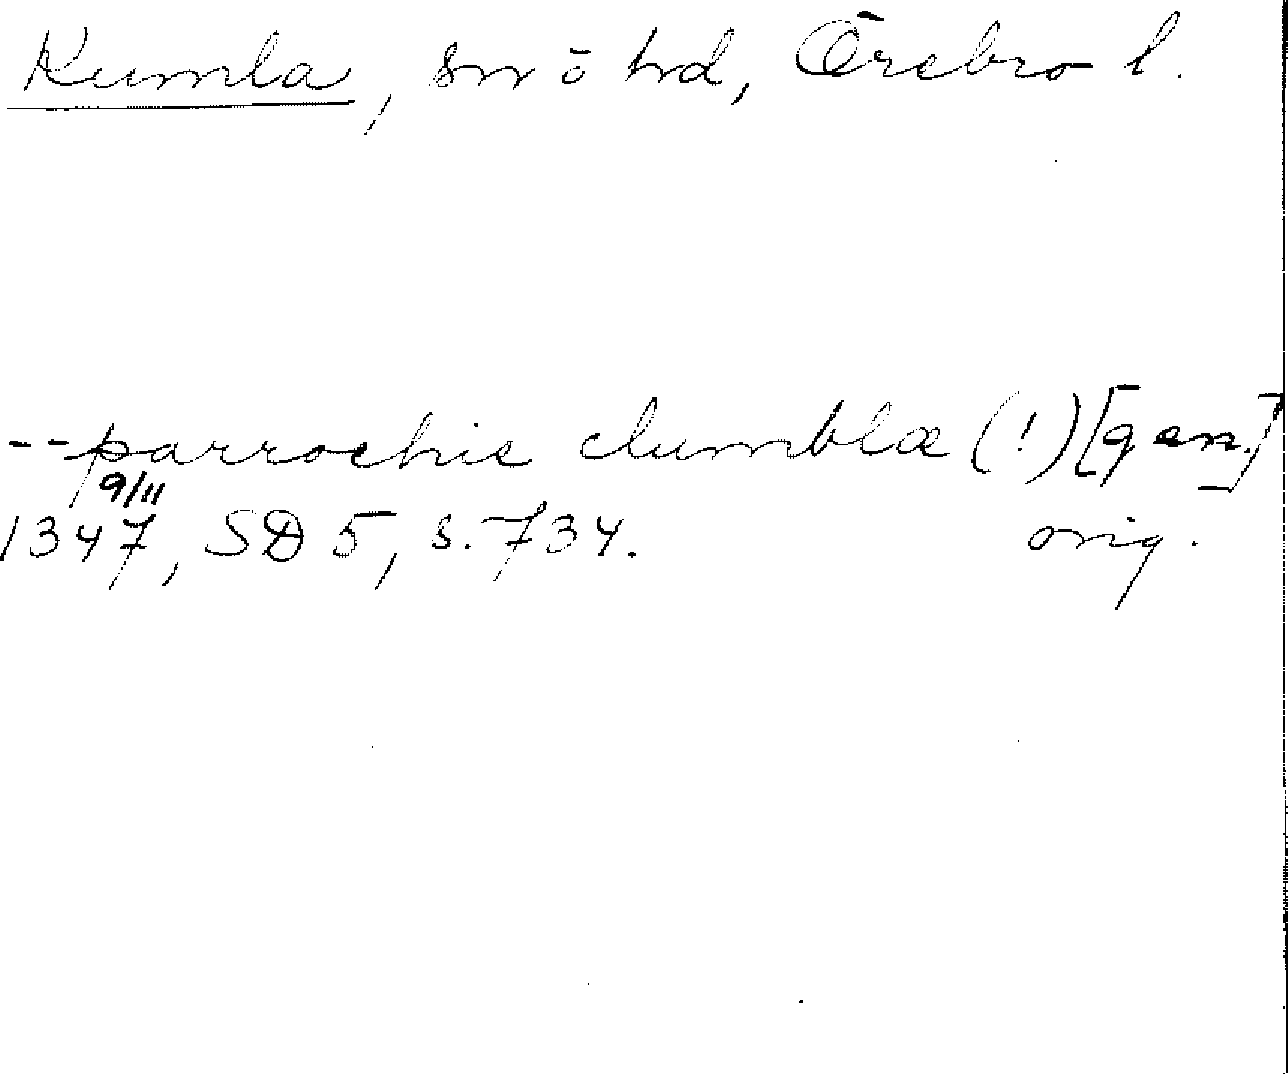 Kumla, sn ō hd, Örebro l.
--parrochie clumblæ (!) [gen.]
9/11
1347, SD 5, s. 734. orig.